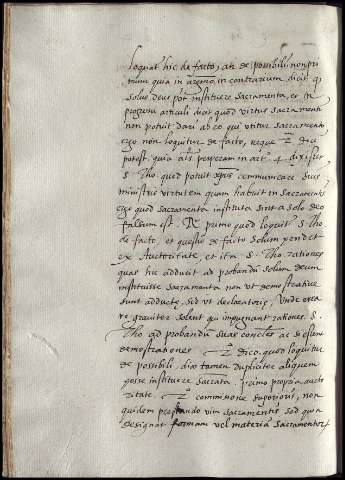 loquat' hic de facto, an de possibili, non pri
mum quia in argumto, in contrarium dicit q'
solus deus pot' instituere sacramenta, et in
progressu articuli dicit quod virtus sacramenti
non potuit dari ab eo qui utitur sacramento
ergo non loquitur de facto, neque 2m dici
potest. quia als' perperam in art. 4. dixisset
S. Tho. quod potuit xp̄us communicare suis
ministris virtutem quam habuit in sacramentis
ergo quod sacramenta instituta sint a solo deo
falsum est. R. primo quod loquit' S. Tho.
de facto, et questio de facto solum pendet
ex Auctoritate, et ita S. Tho. rationes
quas hic adducit ad probandū solum deum
instituisse sacramenta non ut demostrative
sunt adducte, sed ut declaratorie, Unde erra
re graviter solent qui impugnant rationes S.
Tho. ad probandū suas concles' ac si essent
demostrationes. 2o dico quod loquitur
de possibili, dico tamen dupliciter aliquem
posse instituere sacrata. primo propria aucto
ritate. 2o commissione superioris, non
quidem prestando vim sacramentis sed qua
designat formam vel materiā sacramentor'